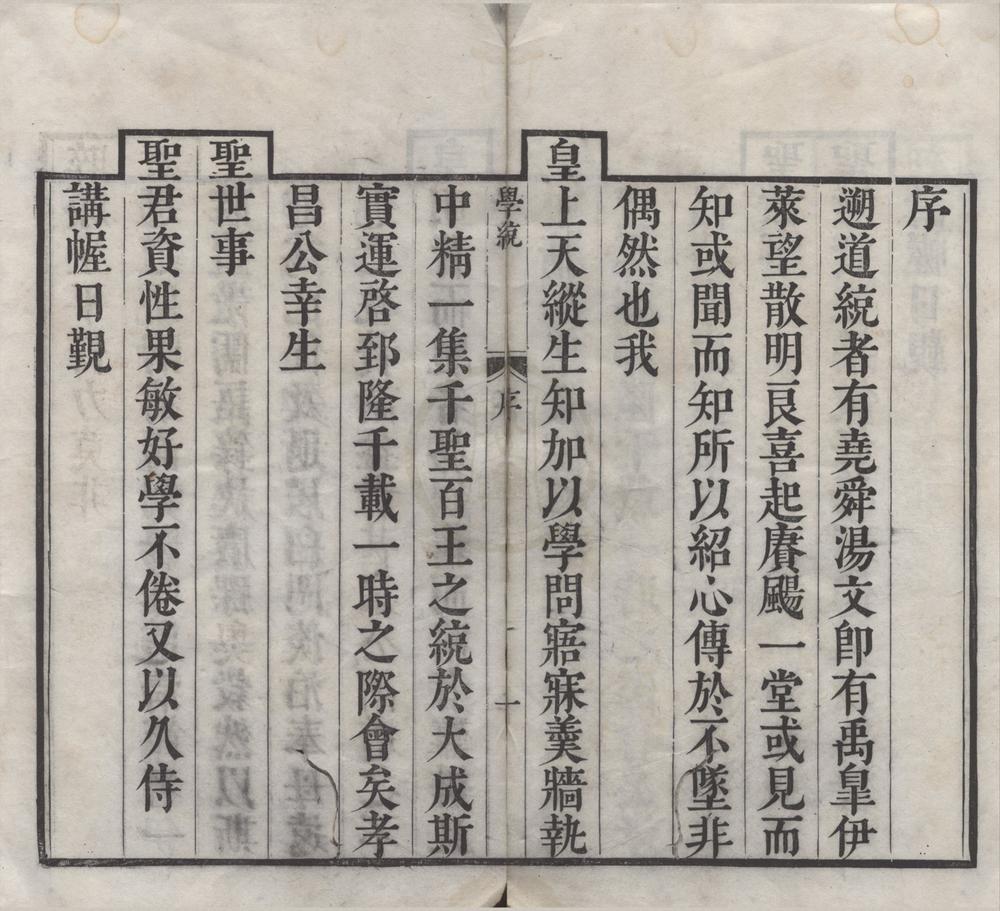 序
遡道統者有堯舜湯文即有禹臯伊
萊望散明良喜起賡颺一堂或見而
知或聞而知所以紹心傳於不墜非
偶然也我
皇上天縱生知加以學問寤寐羹牆執
學統
序
一
中精一集千聖百王之統於大成斯
實運啓郅隆千載一時之際會矣孝
昌公幸生
聖世事
聖君資性果敏好學不倦又以久侍
講幄日觐